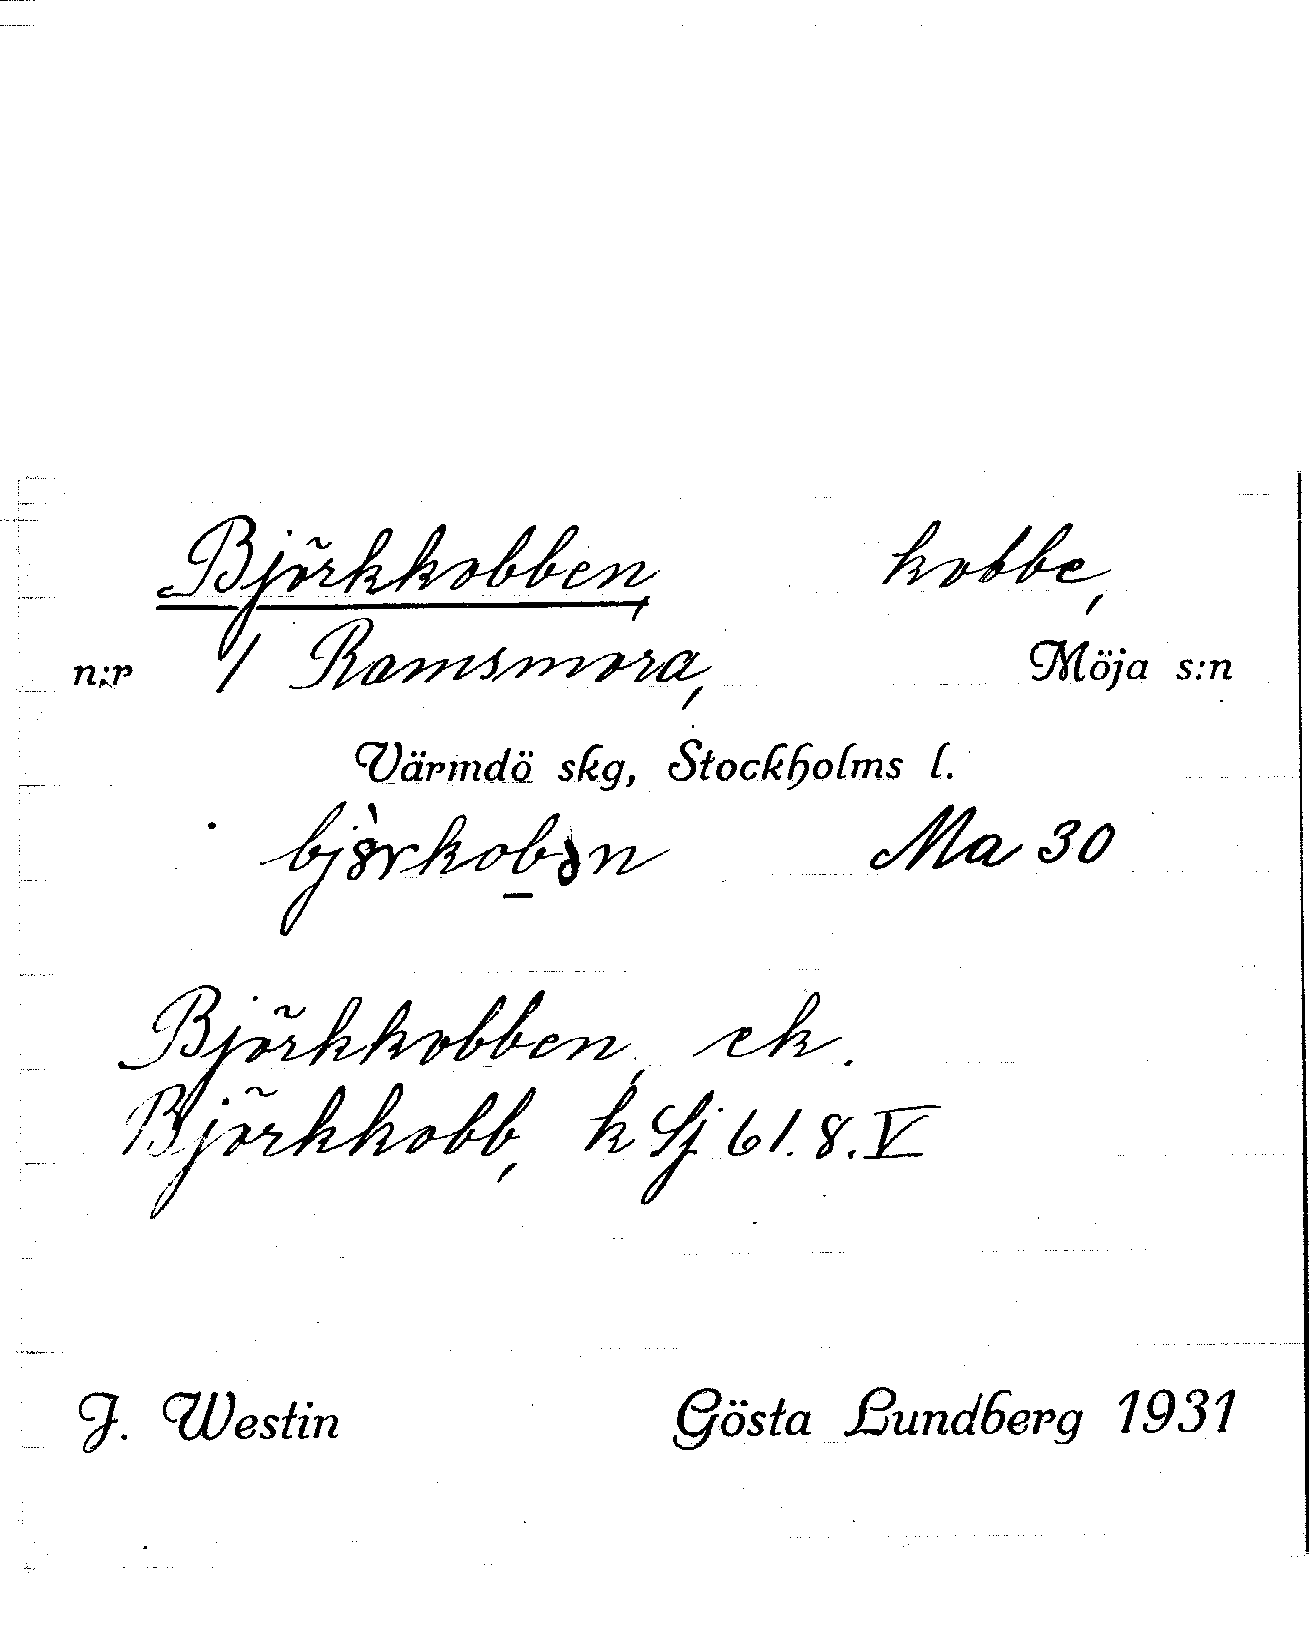 Björkkobben, kobbe,
n:r 1 Ramsmora, Möja s:n
Värmdö skg, Stockholms l.
bjùrkobən Ma 30
Björkkobben, ek.
Björkkobb, k Sj 61. 8. V
J. Westin Gösta Lundberg 1931